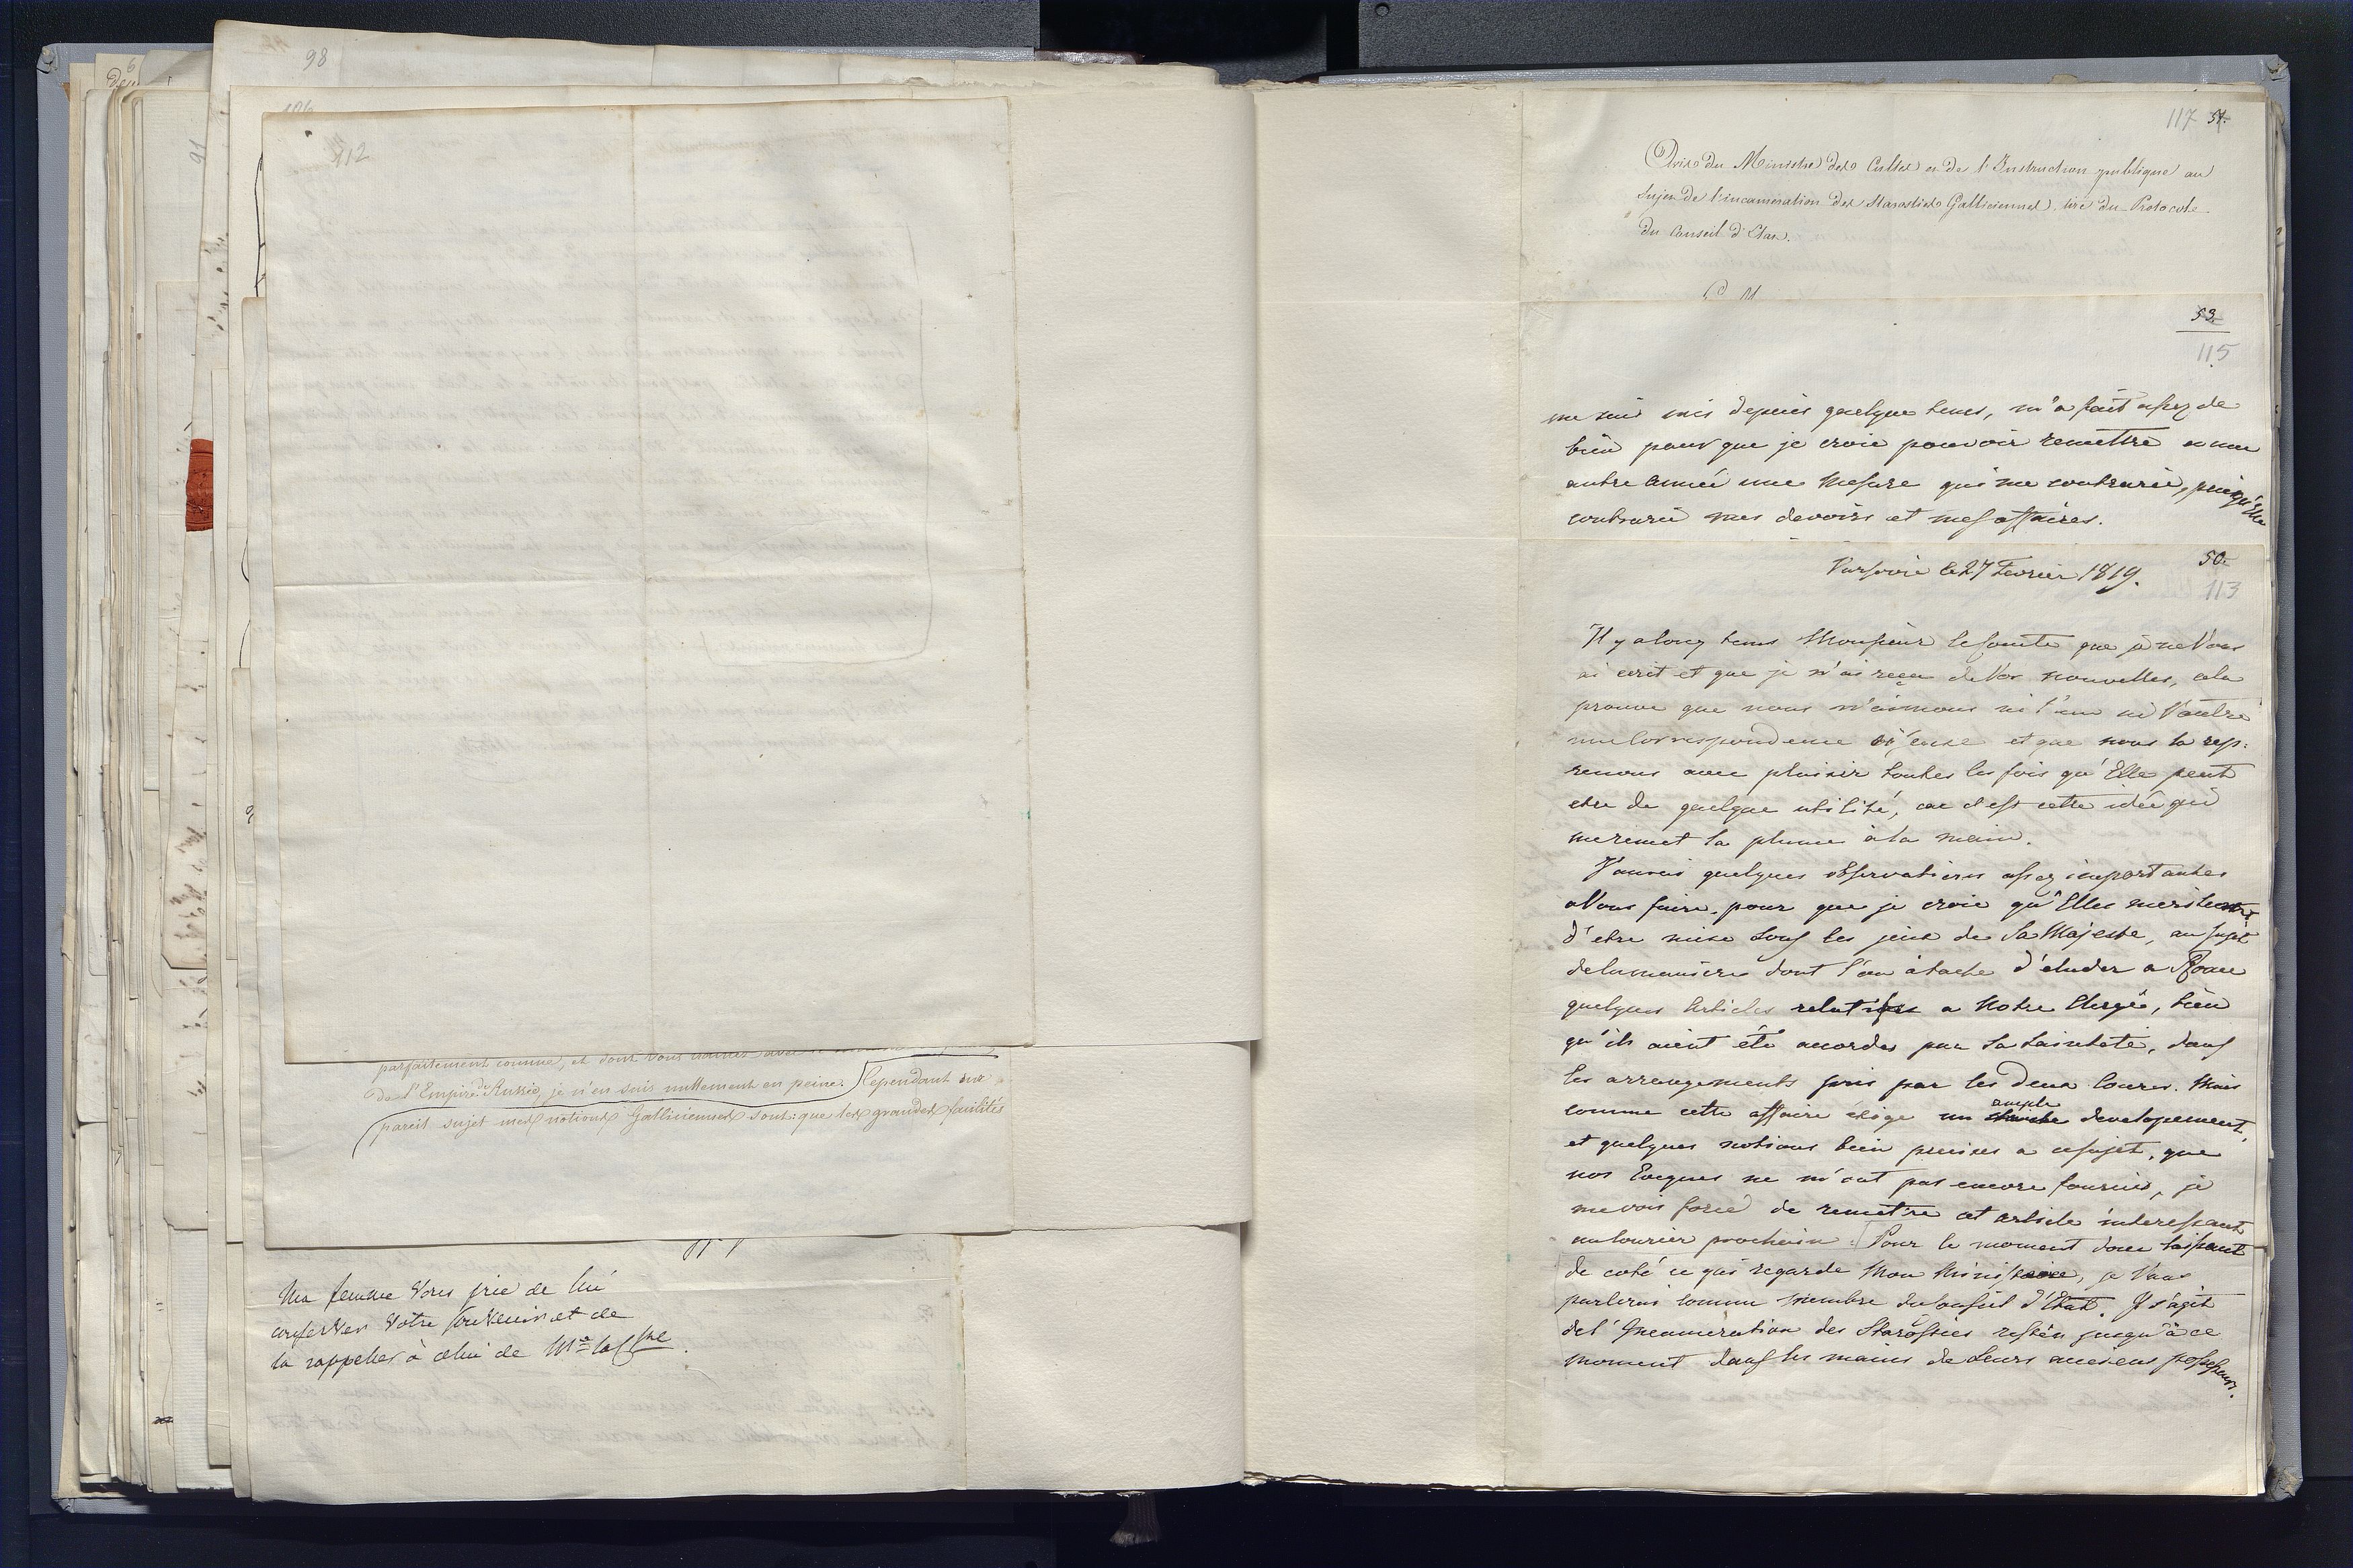 98
112
parfaitement connue, et dont vous
de l'Empire de Russie, je n'en suis nullement en peine. Cependant au
pareil sujet mes notions Galliciennes sont: que les grandes facilités
Ma femme Vous prie de lui
conserver Votre souvenir et de
la rappeler à celui de Me la Csse.
117 54.
Avis du Ministre des Cultes et de l'Instruction publique au
Sujet de l'incameration des Starosties Galliciennes, tiré du Protocole
du Conseil d'Etat.
53
115
me suis mis depuis quelque tems, m'a fait assez de
bien pour que je croie pouvoir remettre a une
autre année une Mesure qui me contrarie, puisqu'Elle
contrarie mes devoirs et mes affaires.
50
113
Varsovie le 27 Fevrier 1819.
Il y a long tems Monsieur le Comte que je ne Vous
ai ecrit et que je n'ai reçu de Vos nouvelles, cela
prouve que nous n'aimons ni l'un ni l'autre
une Correspondence oiseuse et que nous la rep-
renons avec plaisir toutes les fois qu'Elle peut
etre de quelque utilité, car c'est cette idée qui
me remet la plume à la main.
J'aurois quelques observations assez importantes
a Vous faire, pour que je croie qu'Elles meritent
d'etre mise sous les yeux de Sa Majesté, au sujet
de la maniere dont l'on a tache d'eluder a Rome
quelques Articles relatifs a Notre Clergé, bien
qu'ils aient été accordes par Sa Sainteté, dans
les arrangements pris par les deux Coures. Mais
comme cette affaire éxige un ample developement,
et quelques notions bien precises a ce sujet, que
nos Eveques ne m'ont pas encore fournis, je
me vois forcé de remettre cet article interessant
au Courier prochain. Pour le moment donc laissant
de coté ce qui regarde Mon Ministere, je Vous
parlerai comme Membre du Conseil d'Etat. Il s'agit
de l'Incameration des Starosties restées jusqu'à ce
moment dans les mains de Leurs anciens possesseurs.